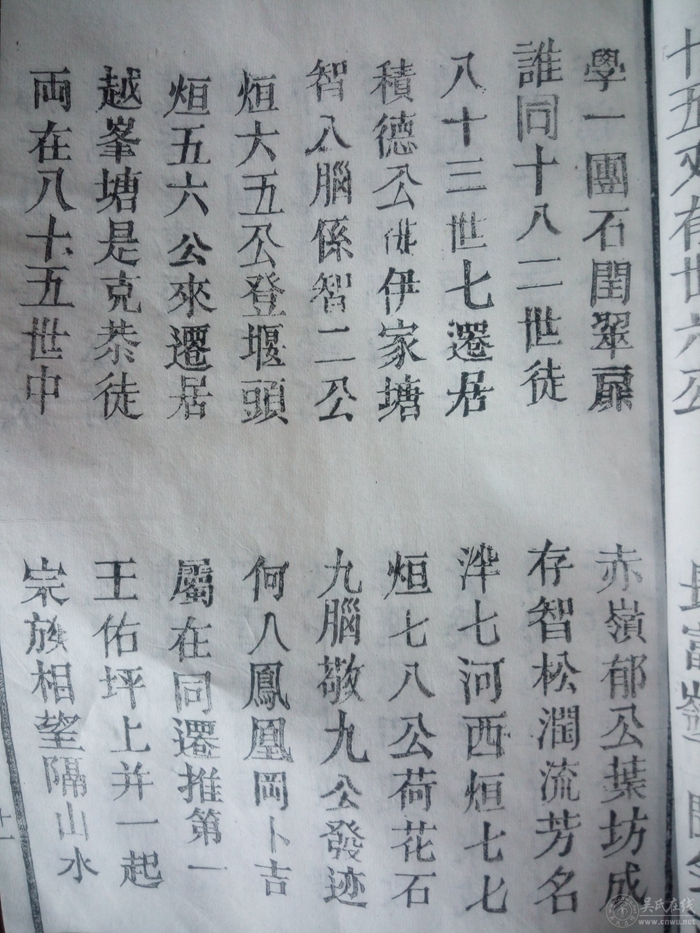 十五來有世六公
學一團石閏翠扉 赤嶺郁公葉坊成
誰同十八二世徒 存智松潤流芳名
八十三世七遷居 泮七河西烜七七
積德公俳伊家塘 烜七八公荷花石
智八腦係智二公 九腦敬九公發迹
烜大五公登堰頭 何人鳳凰岡卜吉
烜五六公來遷居 屬在同遷推第一
越峯塘是克恭徒 王佑坪上并一起
両在八十五世中 宗族相望隔山水
吴氏在线
www.cnwu.net